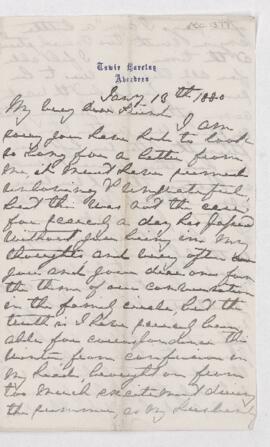 Towie Barclay
Aberdeen
Jany 13th 1880
My very dear Friend
I am
sorry you have had to look
so long for a letter from
me, it must have seemed
unloving & ungrateful,
but this was not the case
for scarcely a day has passed
without you being in my
thoughts and very often
you and your dear ones form
the theme of our conversation
in the family circle, but the
truth is I have scarcely been
able for correspondence this
Winter from confusion in
my head, brought on from
too much excitement during
the summer, as my husband